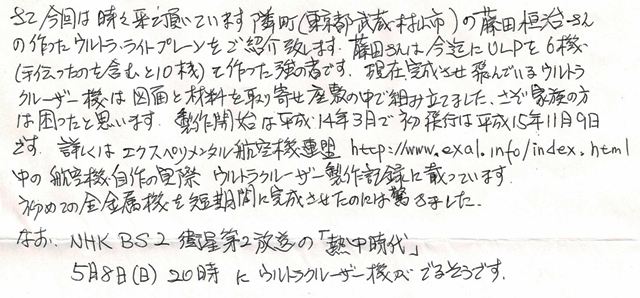 さて今回は時々来て頂いています隣町(東京都武蔵村山市)の藤田恒治さん
の作ったウルトラ・ライトプレーンをご紹介致します。藤田さんは今迄にULPを6機
(手伝ったのを含むと10機)も作った強の者です。現在完成させ飛んでいるウルトラ
クルーザー機は図面と材料を取り寄せ座敷の中で組み立てました、さぞ家族の方
は困ったと思います。製作開始は平成14年3月で初飛行は平成15年11月9日
です。詳しくはエクスペリメンタル航空機連盟 http://www.exal.info/index.html
中の航空機自作の実際 ウルトラクルーザー製作記録に載っています。
初めての全金属機を短期間に完成させたのには驚きました。
なお、NHK BS2 衛星第2放送の「熱中時代」
5月8日(日) 20時 にウルトラクルーザー機がでるそうです。